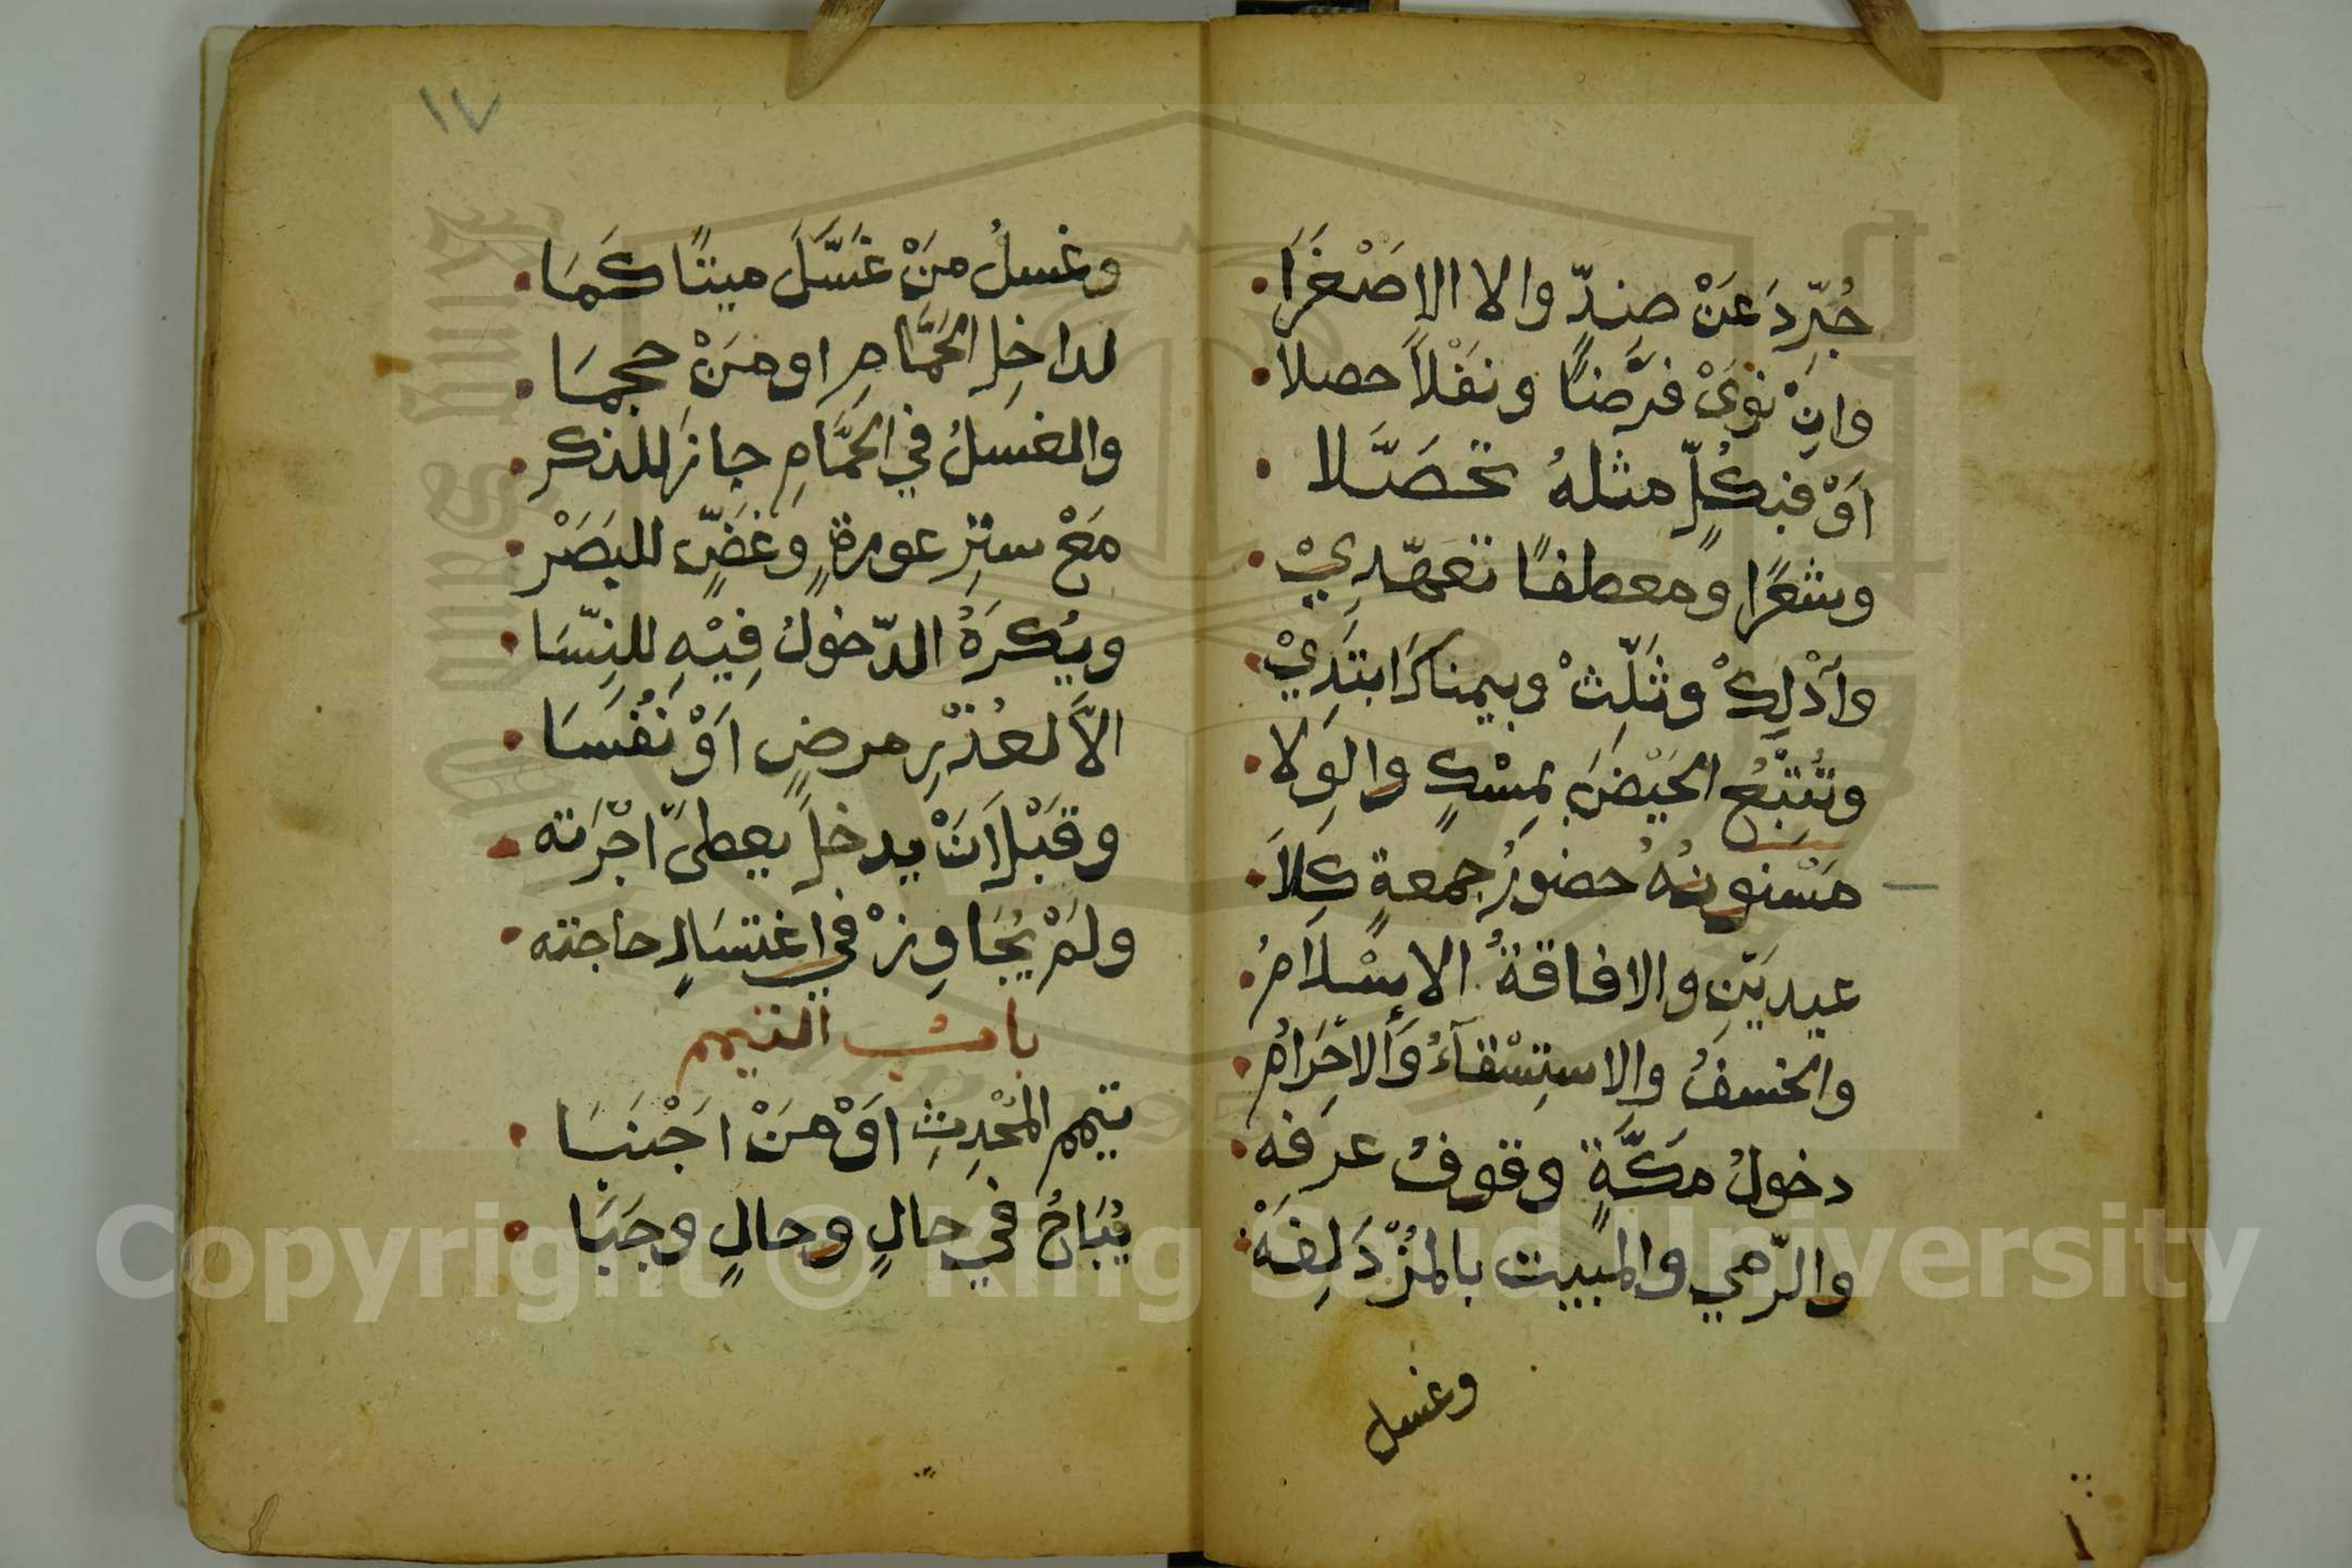 جُرِّدَ عَنْ ضِدٍّ والا الاصْغَرَا
وانِْ نوَىْ فرْضًا ونفْلاً حصلا
اَوْ فبكُلٍّ مثلهُ تحصَّلا
وشعْرًا ومعطفًا تعهّدِيْ
وَادْلكْ وثَلِّثْ وبيمناكَ ابتَدِيْ
وتُتْبْعُ الحَيْضَ بمِسْكٍ والوِلا
مَسْنونهُ حضورُ جمعةٍ كِلاَ
عيديْنِ والافاقةُ الاِسْلاَمُ
والخسفُ والاستِسْقآءُ وَالاحْرَامُ
دخولُ مكَّةٍ وقوفُ عرفه
والرّمي والمبيت بالمُزْدَلِفَهْ
وغسل
١٧
وغسلُ مَنْ غسَّلَ ميتًا كَمَا
لداخِلِ الحَمَّامِ او مَنْ حجمَا
والغسلُ في الحمَّامِ جازَ للذكر
مَعْ ستِر عورةٍ وغضٍّ للبَصَرْ
ويُكرَهُ الدّخولُ فِيْهِ للنِّسَا
الاَّ لعُذْرِ مرضٍ اَوْ نُفَسَا
وقبْل اَنْ يدخلَ يعطىَ اجْرَته
ولَمْ يُجَاوِزْ في اغتسَالٍ حاجته
بابُ التيمم
تيمم المُحْدِثِ اَوْ مَنْ اجْنَبَا
يُبَاحُ في حالٍ وحالٍ وجَبَا
Copyright © King Saud University